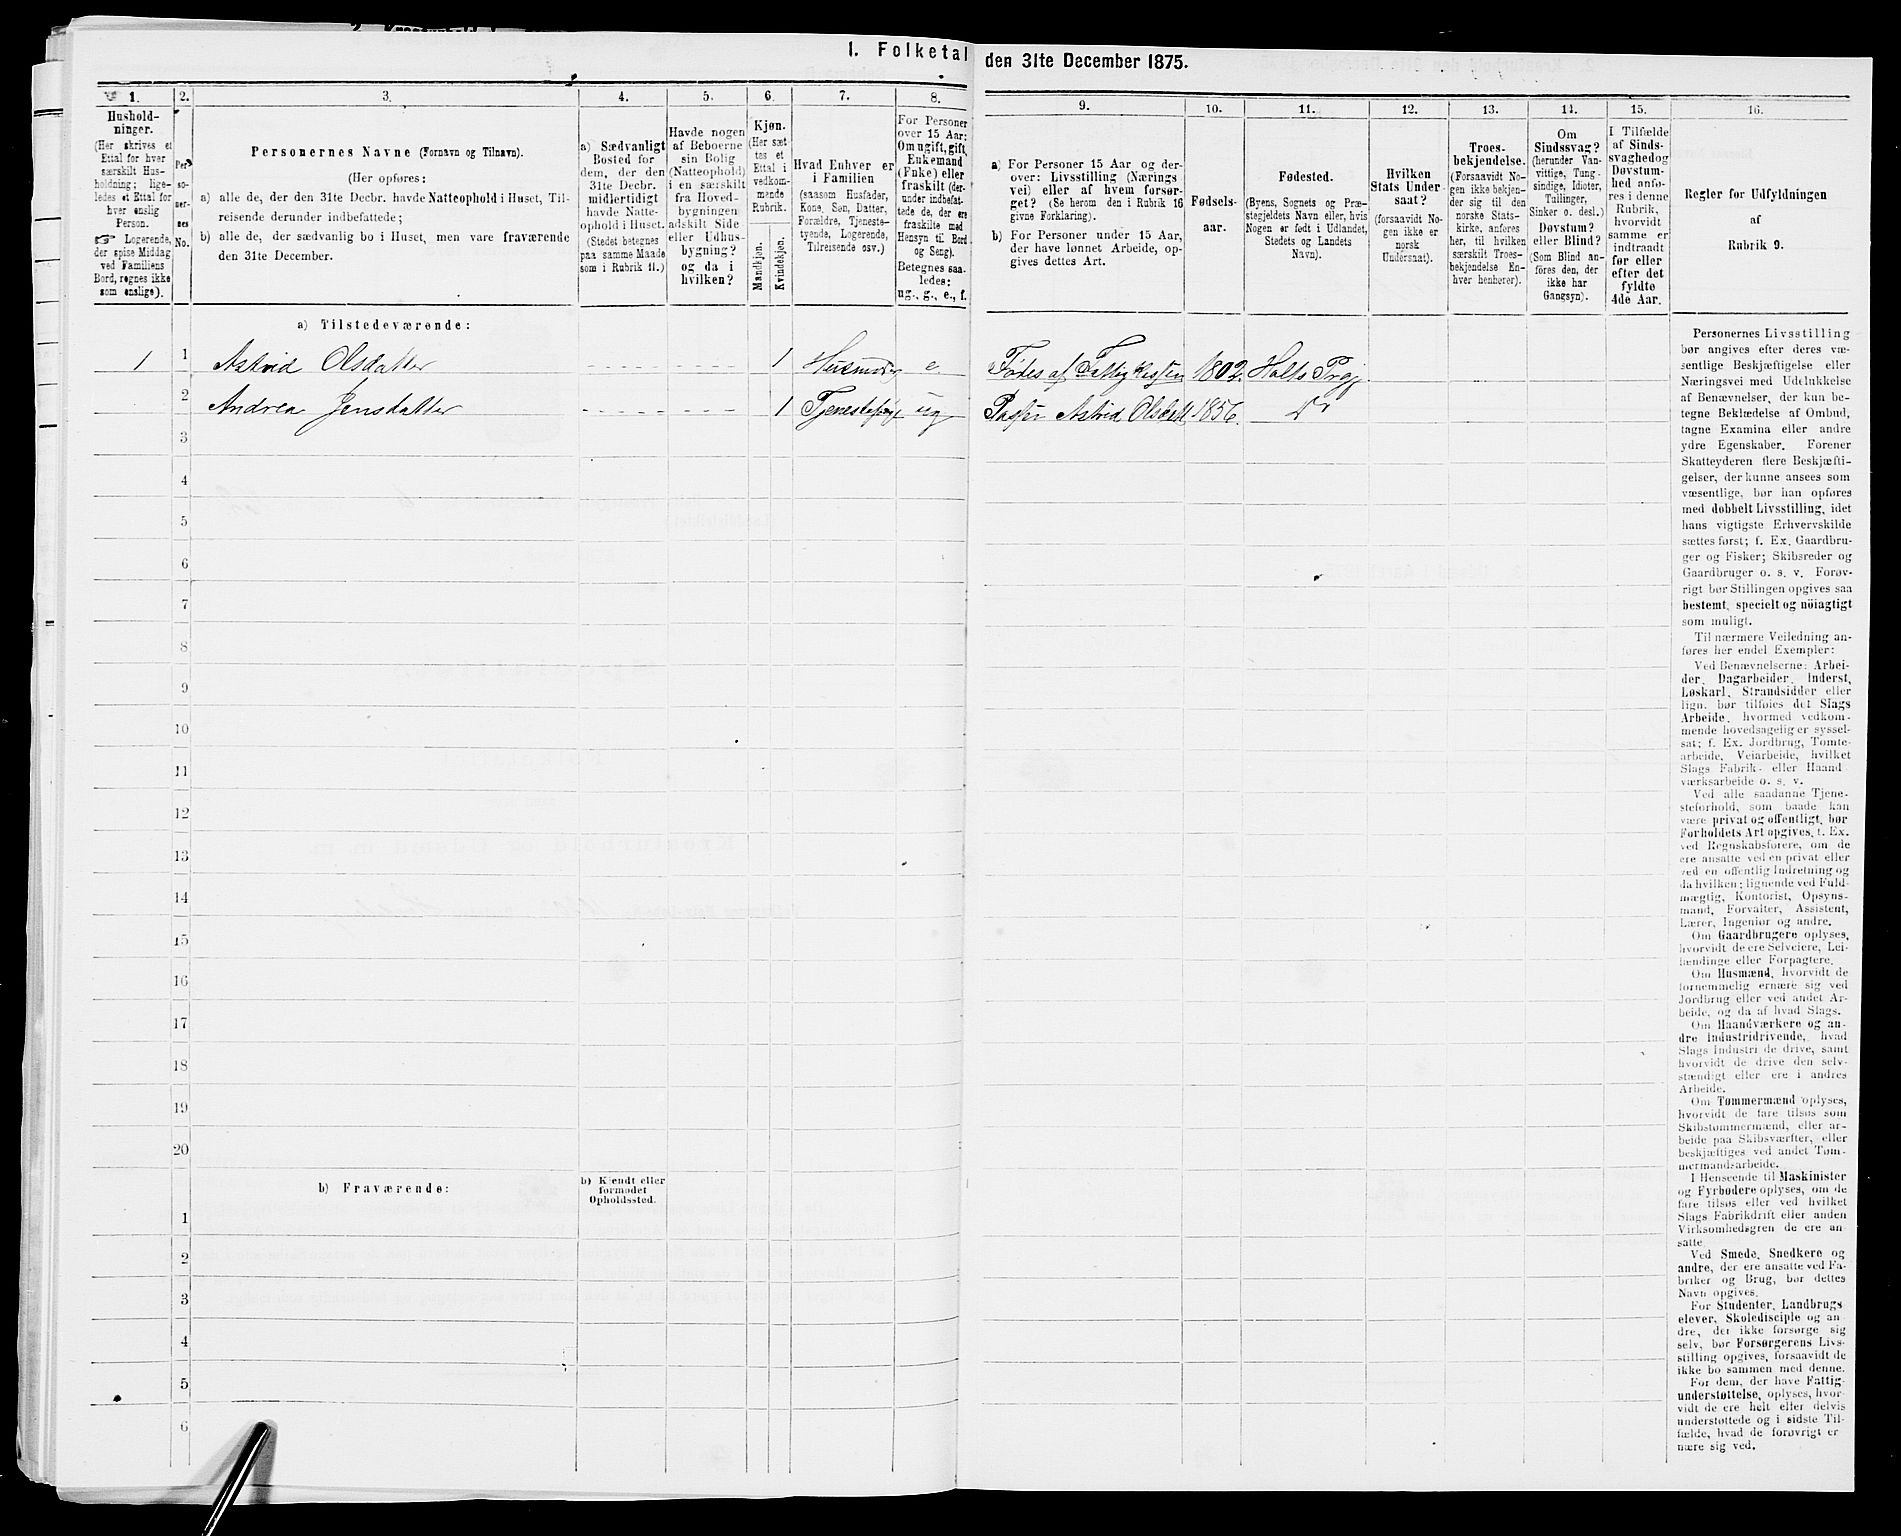 1. Folketal den 31te December 1875.
1.
Hushold-
ninger.
(Her skrives et
Ettal for hver
særskilt Hus-
holdning; lige-
ledes et Ettal for
hver enslig
Person.
☞ Logerende,
der spise Middag
ved Familiens
Bord, regnes ikke
som enslige).
2.
Per-
so-
ner-
nes
No.
3.
Personernes Navne (Fornavn og Tilnavn).
(Her opføres:
a) alle de, der den 31te Decbr. havde Natteophold i Huset, Til-
reisende derunder indbefattede;
b) alle de, der sædvanlig bo i Huset, men vare fraværende
den 31te December.
4.
a) Sædvanligt
Bosted for
dem, der den
31te Decbr.
midlertidigt
havde Natte-
ophold i Huset.
(Stedet betegnes
paa samme Maade
som i Rubrik 11.)
5.
Havde nogen
af Beboerne
sin Bolig
(Natteophold)
i en særskilt
fra Hoved-
bygningen
adskilt Side-
eller Udhus-
bygning?
og da i
hvilken?
6.
Kjøn.
(Her sæt
tes et
Ettal i
vedkom-
mende
Rubrik.
Mandkjøn.
Kvindekjøn.
7.
Hvad Enhver er
i Familien
(saasom Husfader,
Kone, Søn, Datter,
Forældre, Tjeneste-
tyende, Logerende,
Tilreisende osv.)
8.
For Personer
over 15 Aar:
Om ugift, gift,
Enkemand
(Enke) eller
fraskilt (der-
under indbefat-
tede de, der ere
fraskilte med
Hensyn til Bord
og Seng).
Betegnes saa-
ledes:
ug., g., e., f.
9.
a) For Personer 15 Aar og der-
over: Livsstilling (Nærings
vei) eller af hvem forsør-
get? (Se herom den i Rubrik 16
givne Forklaring).
b) For Personer under 15 Aar,
der have lønnet Arbeide, op-
gives dettes Art.
10.
Fødsels-
aar.
11.
Fødested.
(Byens, Sognets og Præ-
stegjeldets Navn eller, hvis
Nogen er født i Udlandet,
Stedets og Landets
Navn).
12.
Hvilken
Stats Under-
saat?
(forsaavidt No-
gen ikke er
norsk
Undersaat).
13.
Troes-
bekjendelse.
(Forsaavidt No-
gen ikke bekjen-
der sig til den
norske Stats-
kirke, anføres
her, til hvilken
særskilt Troes-
bekjendelse En-
hver henhører).
14.
Om
Sindssvag?
(herunder Van-
vittige, Tung-
sindige, Idioter,
Tullinger,
Sinker o. desl.)
Døvstum?
eller Blind?
(Som Blind an-
føres den, der
ikke har
Gangsyn).
15.
I Tilfælde
af Sinds-
svaghed og
Døvstum-
hed anfø-
res i denne
Rubrik,
hvorvidt
samme er
indtraadt
før eller
efter det
fyldte
4de Aar.
16.
Regler for Udfyldningen
af
Rubrik 9.
a) Tilstedeværende:
1 1 Astrid Olsdatter 1 Husmoder e. Fødes af Fattigkassen 1802. Holts Prgj.
2 Andrea Jensdatter 1 Tjenestepige ug Passer Astrid Olsdatt 1856. Do
3
4
5
6
7
8
9
10
11
12
13
14
15
16
17
18
19
20
b) Fraværende:
b) Kjendt eller
formodet
Opholdssted.
1
2
3
4
5
6
Personernes Livsstilling
bør angives efter deres væ-
sentlige Beskjæftigelse eller
Næringsvei med Udelukkelse
af Benævnelser, der kun be-
tegne Beklædelse af Ombud,
tagne Examina eller andre
ydre Egenskaber. Forener
Skatteyderen flere Beskjæfti-
gelser, der kunne ansees som
væsentlige, bør han opføres
med dobbelt Livsstilling, idet
hans vigtigste Erhvervskilde
sættes først; f. Ex. Gaardbru-
ger og Fisker; Skibsreder og
Gaardbruger o. s. v. Forøv-
rigt bør Stillingen opgives saa
bestemt, specielt og nöiagtigt
som muligt.
Til nærmere Veiledning an-
føres her endel Exempler:
Ved Benævnelserne: Arbei-
der, Dagarbeider, Inderst,
Løskarl, Strandsidder eller
lign. bør tilføies det Slags
Arbeide, hvormed vedkom-
mende hovedsagelig er syssel-
sat; f. Ex. Jordbrug, Tomte-
arbeide, Veiarbeide, hvilket
Slags Fabrik- eller Haand
værksarbeide o. s. v.
Ved alle saadanne Tjene-
steforhold, som baade kan
være privat og offentligt, bør
Forholdets Art opgives, t. Ex.
ved Regnskabsførere, om de
ere ansatte ved en privat eller
ved en offentlig Indretning og
da hvilken; lignende ved Fuld-
mægtig, Kontorist, Opsyns-
mand, Forvalter, Assistent,
Lærer, Ingeniør og andre.
Om Gaardbrugere oplyses,
hvorvidt de ere Selveiere, Lei-
lændinge eller Forpagtere.
Om Husmænd, hvorvidt de
fornemmelig ernære sig ved
Jordbrug eller ved andet Ar-
beide, og da af hvad Slags.
Om Haandværkere og an-
dre Industridrivende, hvad
Slags Industri de drive, samt
hvorvidt de drive den selv-
stændigt eller ere i andres
Arbeide.
Om Tømmermænd oplyses,
hvorvidt de fare tilsøs som
Skibstømmermænd, eller ar-
beide paa Skibsværfter, eller
beskjæftiges ved andet Tøm-
mermandsarbeide.
I Henseende til Maskinister
og Fyrbødere oplyses, om de
fare tilsøs eller ved hvilket
Slags Fabrikdrift eller anden
Virksomhedsgren de ere an-
satte.
Ved Smede, Snedkere og
andre, der ere ansatte ved Fa-
briker og Brug, bør dettes
Navn opgives.
For Studenter, Landbrugs
elever, Skoledisciple og an-
dre, der ikke forsørge sig
selv, bør Forsørgerens Livs-
stilling opgives, forsaavidt de
ikke bo sammen med denne.
For dem, der have Fattig-
understøttelse, oplyses, hvor-
vidt de ere helt eller delvis
understøttede og i sidste Til-
fælde, hvad de forøvrigt er
nære sig ved.